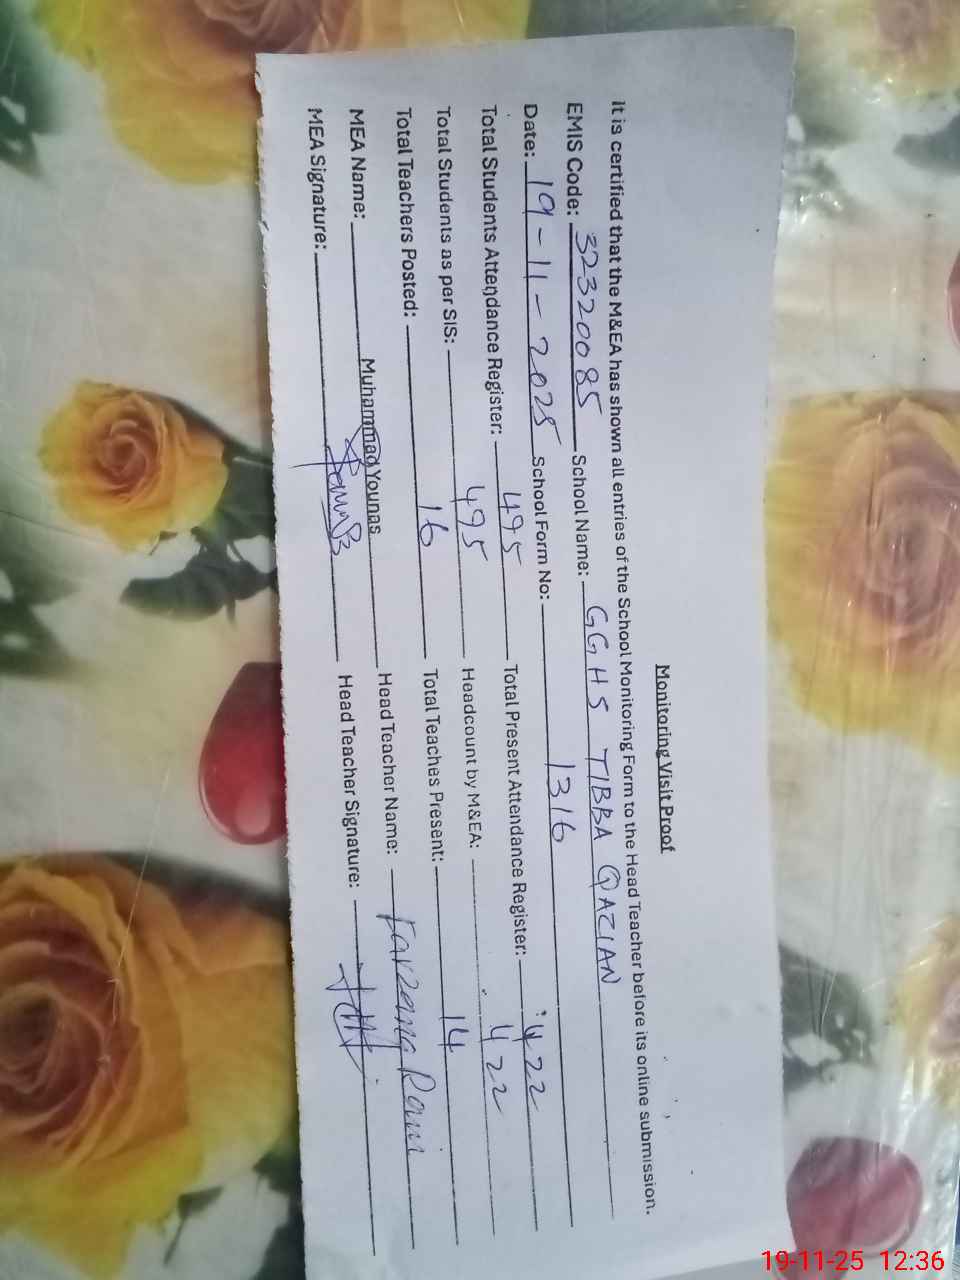 Monitoring Visit Proof
It is certified that the M&EA has shown all entries of the School Monitoring Form to the Head Teacher before its online submission.
EMIS Code: 32320085 School Name: GGHS TIBBA QAZIAN
Date: 19-11-2025 School Form No: 1316
Total Students Attendance Register: 495 Total Present Attendance Register: 422
Total Students as per SIS: 495 Headcount by M&EA: 422
Total Teachers Posted: 16 Total Teaches Present: 14
MEA Name: Muhammad Younas Head Teacher Name: Farzana Rani
MEA Signature: Head Teacher Signature:
19-11-25 12:36